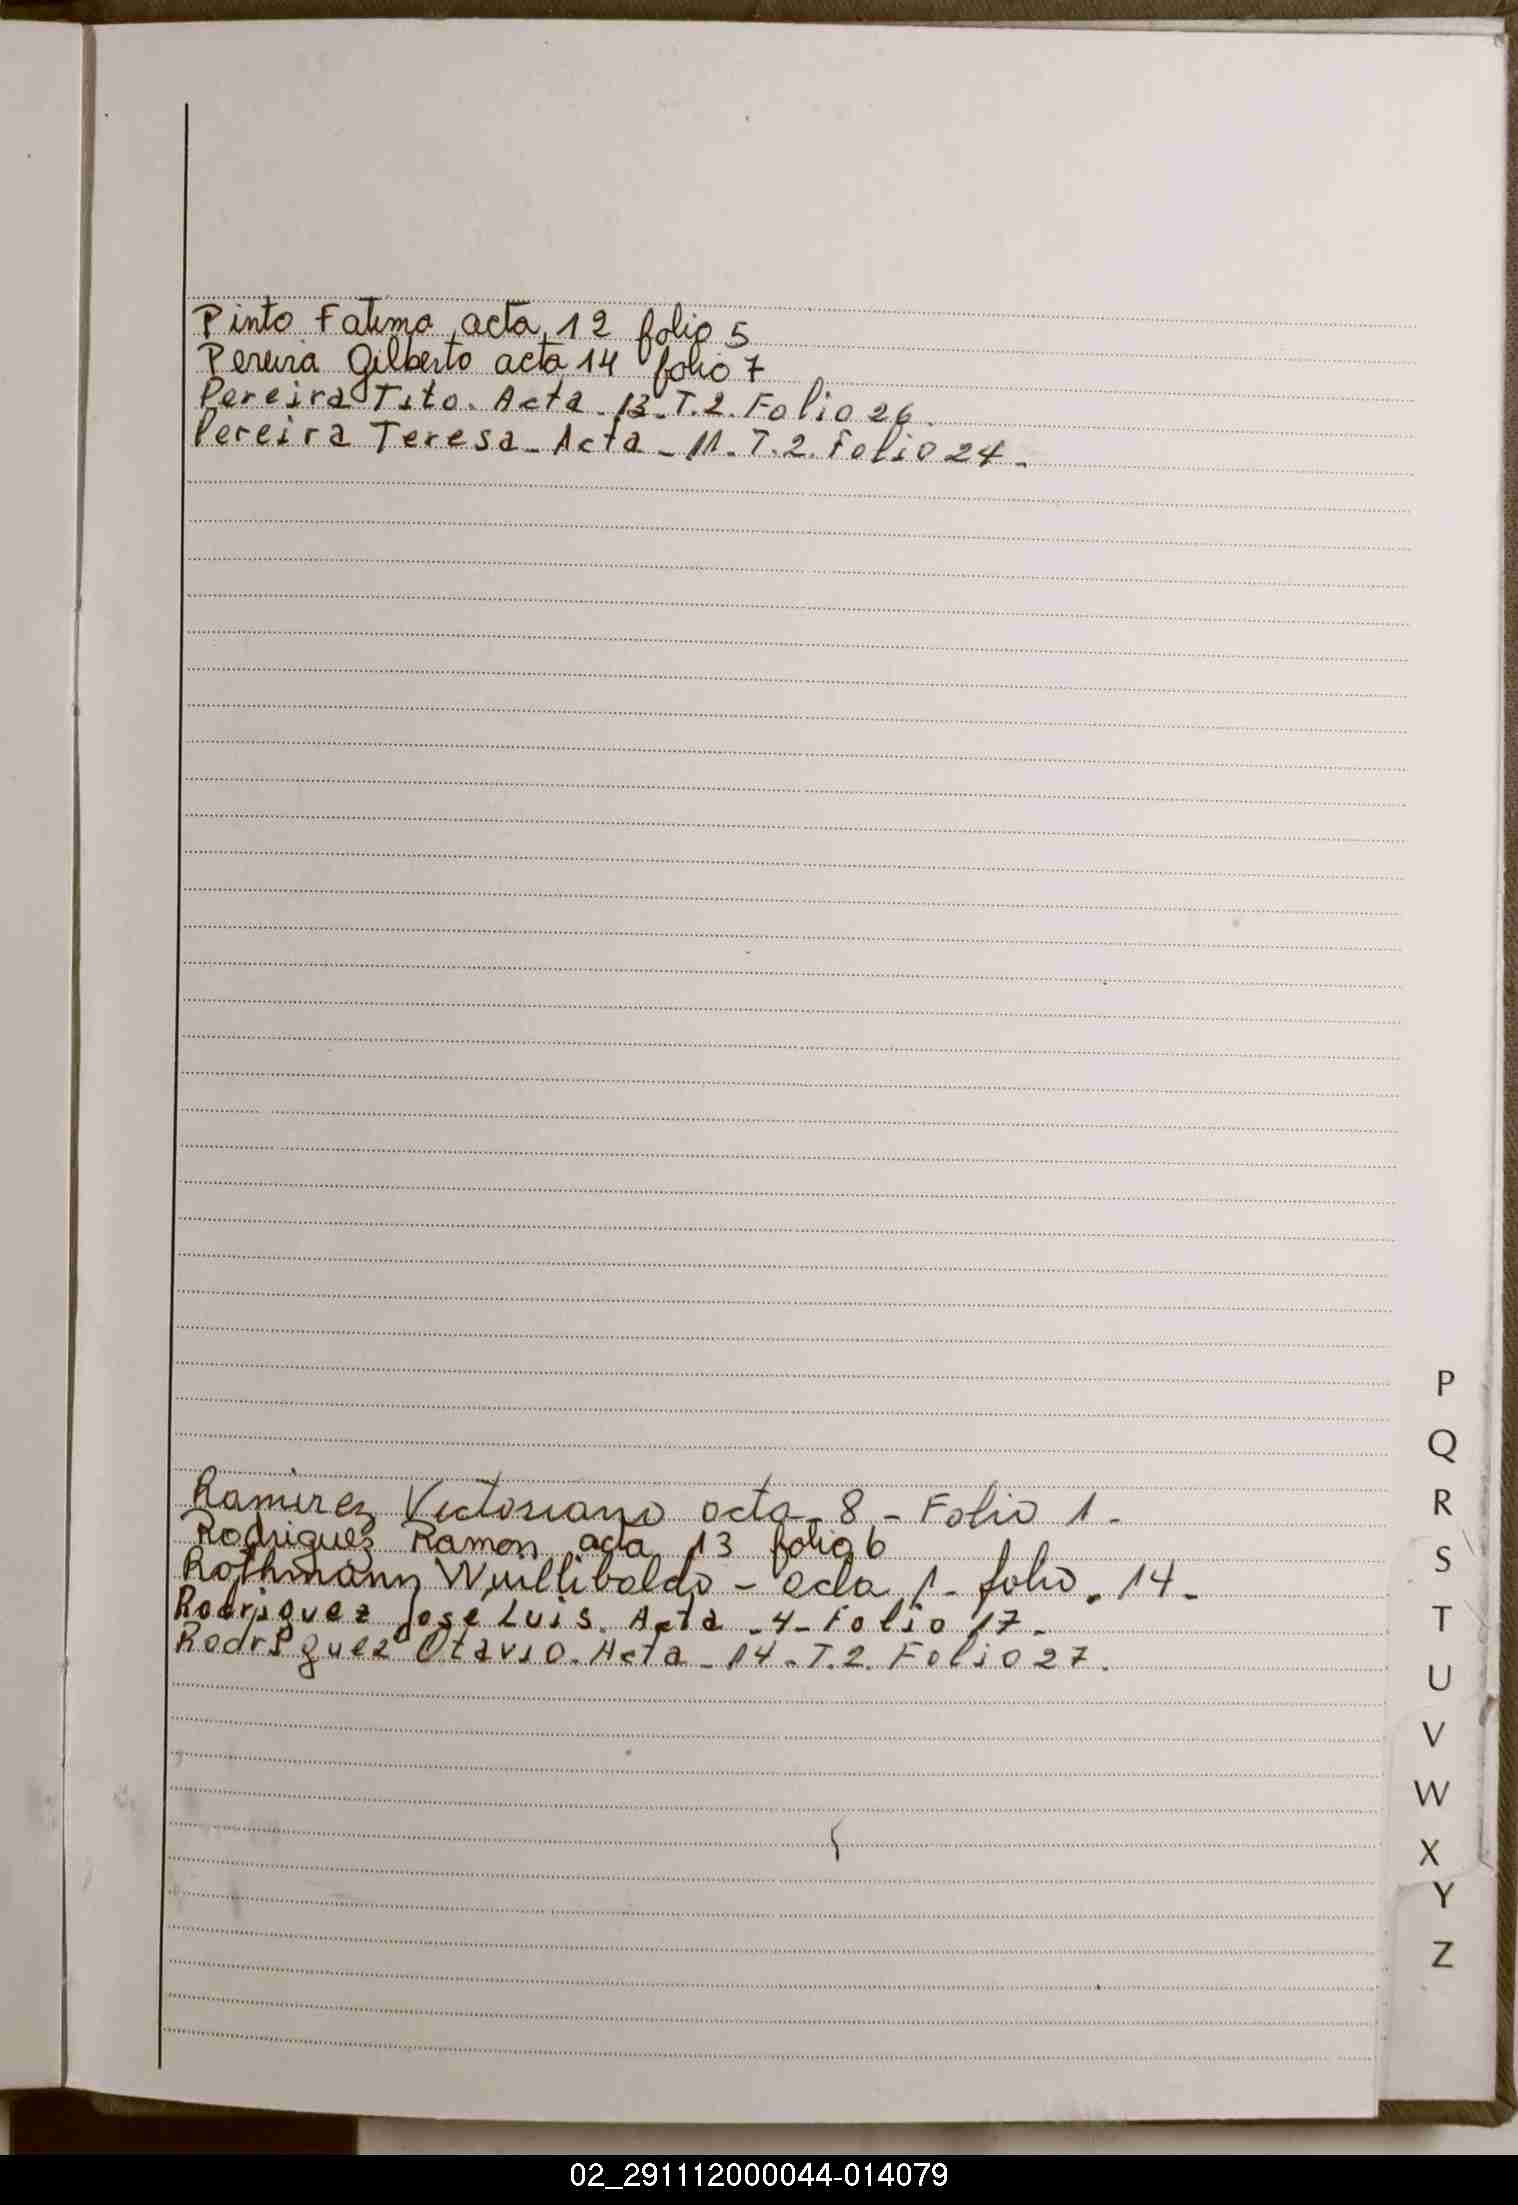 Pinto Fatima acta 12 folio 5
Pereira Gilberto acta 14 folio 7
Pereira Tito. Acta - 13 - T.2. Folio 26.
Pereira Teresa - Acta - 11. T.2. Folio 24 -
Ramirez Victoriano acta - 8 - Folio 1 -
Rodriguez Ramon acta 13 folio 6
Rothmann Wuillibaldo - acta 1 - folio . 14 -
Rodriguez Jose Luis. Acta - 4 - Folio 17 -
Rodriguez Otavio. Acta - 14 - T.2. Folio 27.
P
Q
R
S
T
U
V
W
X
Y
Z
02_291112000044-014079